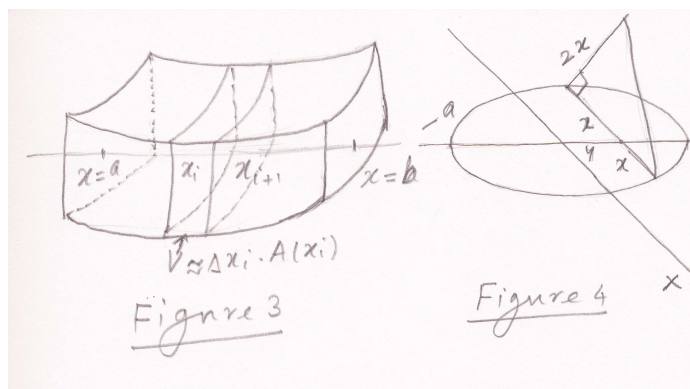 x=a
xi
xi+1
x=b
V≈Δxi·A(xi)
Figure 3
-a
2x
x
y
x
X
Figure 4